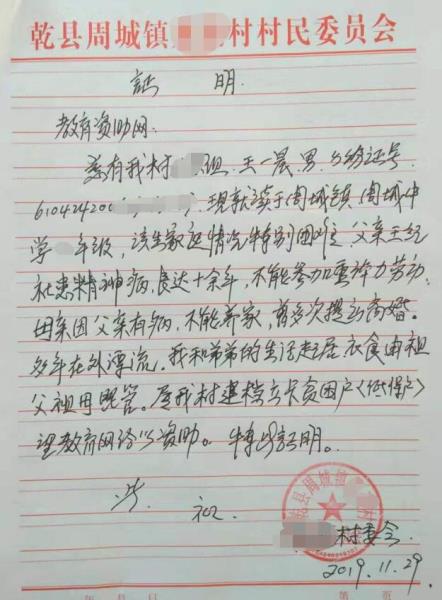 乾县周城镇 村村民委员会
证 明
教育资助网:
兹有我村 组,王一晨,男,身份证号
610424200 ,现就读于周城镇周城中
学 年级,该生家庭情况特别困难,父亲王纪
社患精神病,长达十余年,不能参加重体力劳动,
母亲因父亲有病,不能养家,曾多次提出离婚。
多年在外漂流。我和弟弟的生活起居衣食由祖
父祖母照管。是我村建档立卡贫困户<低保户>
望教育网给以资助。特此证明。
此 致
乾县周城镇
村委会
2019.11.29
第 页